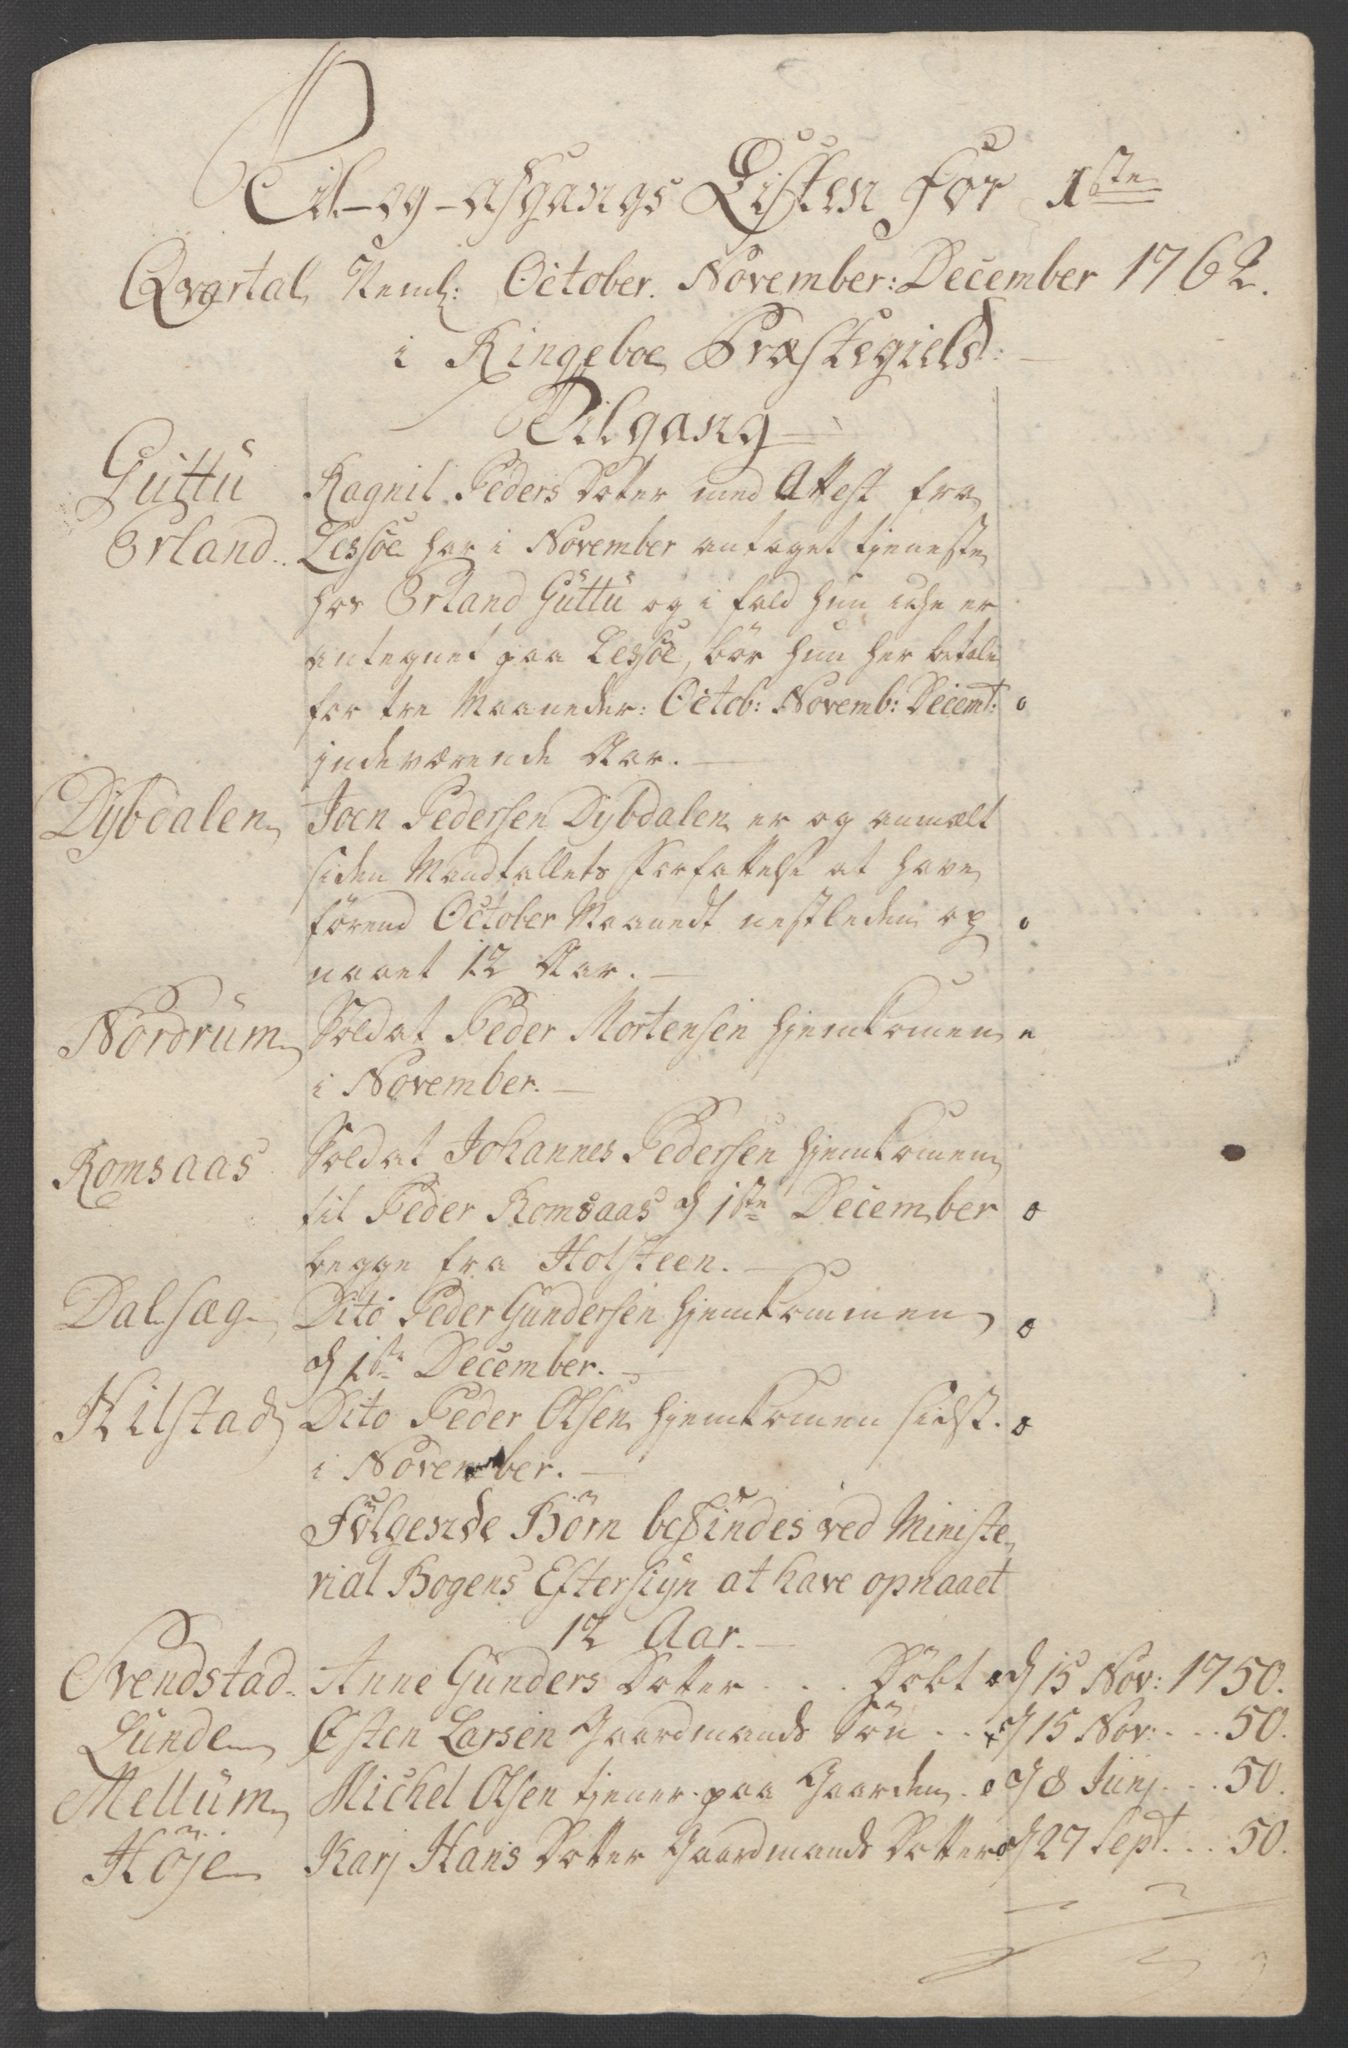 Til- og -afgangs Listen for 1ste
Qvartal Neml: October. November: December 1762.
i Ringeboe Præstegield:
Tilgang
Guttu Ragnil Peders Dotter med Attest fra
Erland.. Lessøe har i November antaget tjeneste
hos Erland Guttu og i fald hun iche er
antegnet paa Lessøe, bör hun her betale
for tre Maaneder: Octob: Novemb: Decemb: o
indeværende Aar.
Dybdalen Joen Pedersen Dybdalen er og anmælt
siden Mandtallets Forfattelse at have
førend October Maanedt nestleden op o
naaet 12 Aar.
Nordrum Soldat Peder Mortensen hjemkomen o
i November.
Romsaas Soldat Johannes Pedersen hjemkomen
til Peder Romsaas d 1ste December o
begge fra Holsteen.
Dalsæg Dito Peder Gundersen hjemkommen o
d 1ste December.
Kilstad Dito Peder Olsen hjemkomen sidst. o
i November.
Følgende Börn befindes ved Ministe
rial Bogens Eftersiyn at have opnaaet
12 Aar.
Svendstad. Anne Gunders Dotter . . . Döbt o d 15 Nov: 1750.
Lunde Esten Larsen Gaardmands Sön . . d 15 Nov: . . . 50.
Mellum Michel Olsen tjener paa Gaarden . o d 8 Junj . . . 50.
Höje Karj Hans Dotter Gaardmands Dotter o d 27 Sept. . . 50.